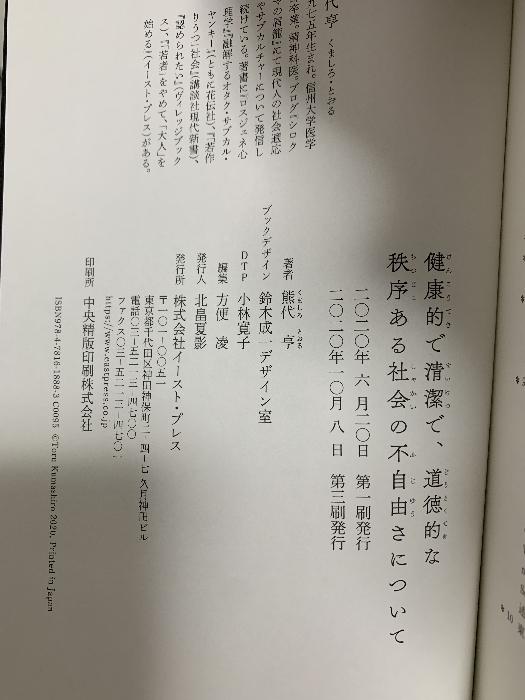 健康的で清潔で、道徳的な
秩序ある社会の不自由さについて
二〇二〇年 六月二〇日 第一刷発行
二〇二〇年一〇月 八日 第三刷発行
著者 熊代 亨
くましろ とおる
ブックデザイン 鈴木成一デザイン室
DTP 小林寛子
編集 方便 凌
発行人 北畠夏影
発行所 株式会社イースト・プレス
〒一〇一-〇〇五一
東京都千代田区神田神保町二-四-七 久月神田ビル
電話〇三-五二一三-四七〇〇
ファクス〇三-五二一三-四七〇一
https://www.eastpress.co.jp
印刷所 中央精版印刷株式会社
ISBN978-4-7816-1888-3 C0095 ©Toru Kumashiro 2020, Printed in Japan
代亨 くましろ・とおる
九七五年生まれ。信州大学医学
卒業。精神科医。ブログ『シロク
の屑籠』にて現代人の社会適応
やサブカルチャーについて発信し
続けている。著書に『ロスジェネ心
理学』『融解するオタク・サブカル・
ヤンキー』(ともに花伝社)、『「若作
りうつ」社会』(講談社現代新書)、
『認められたい』(ヴィレッジブック
ス)、『「若者」をやめて、「大人」を
始める』(イースト・プレス)がある。